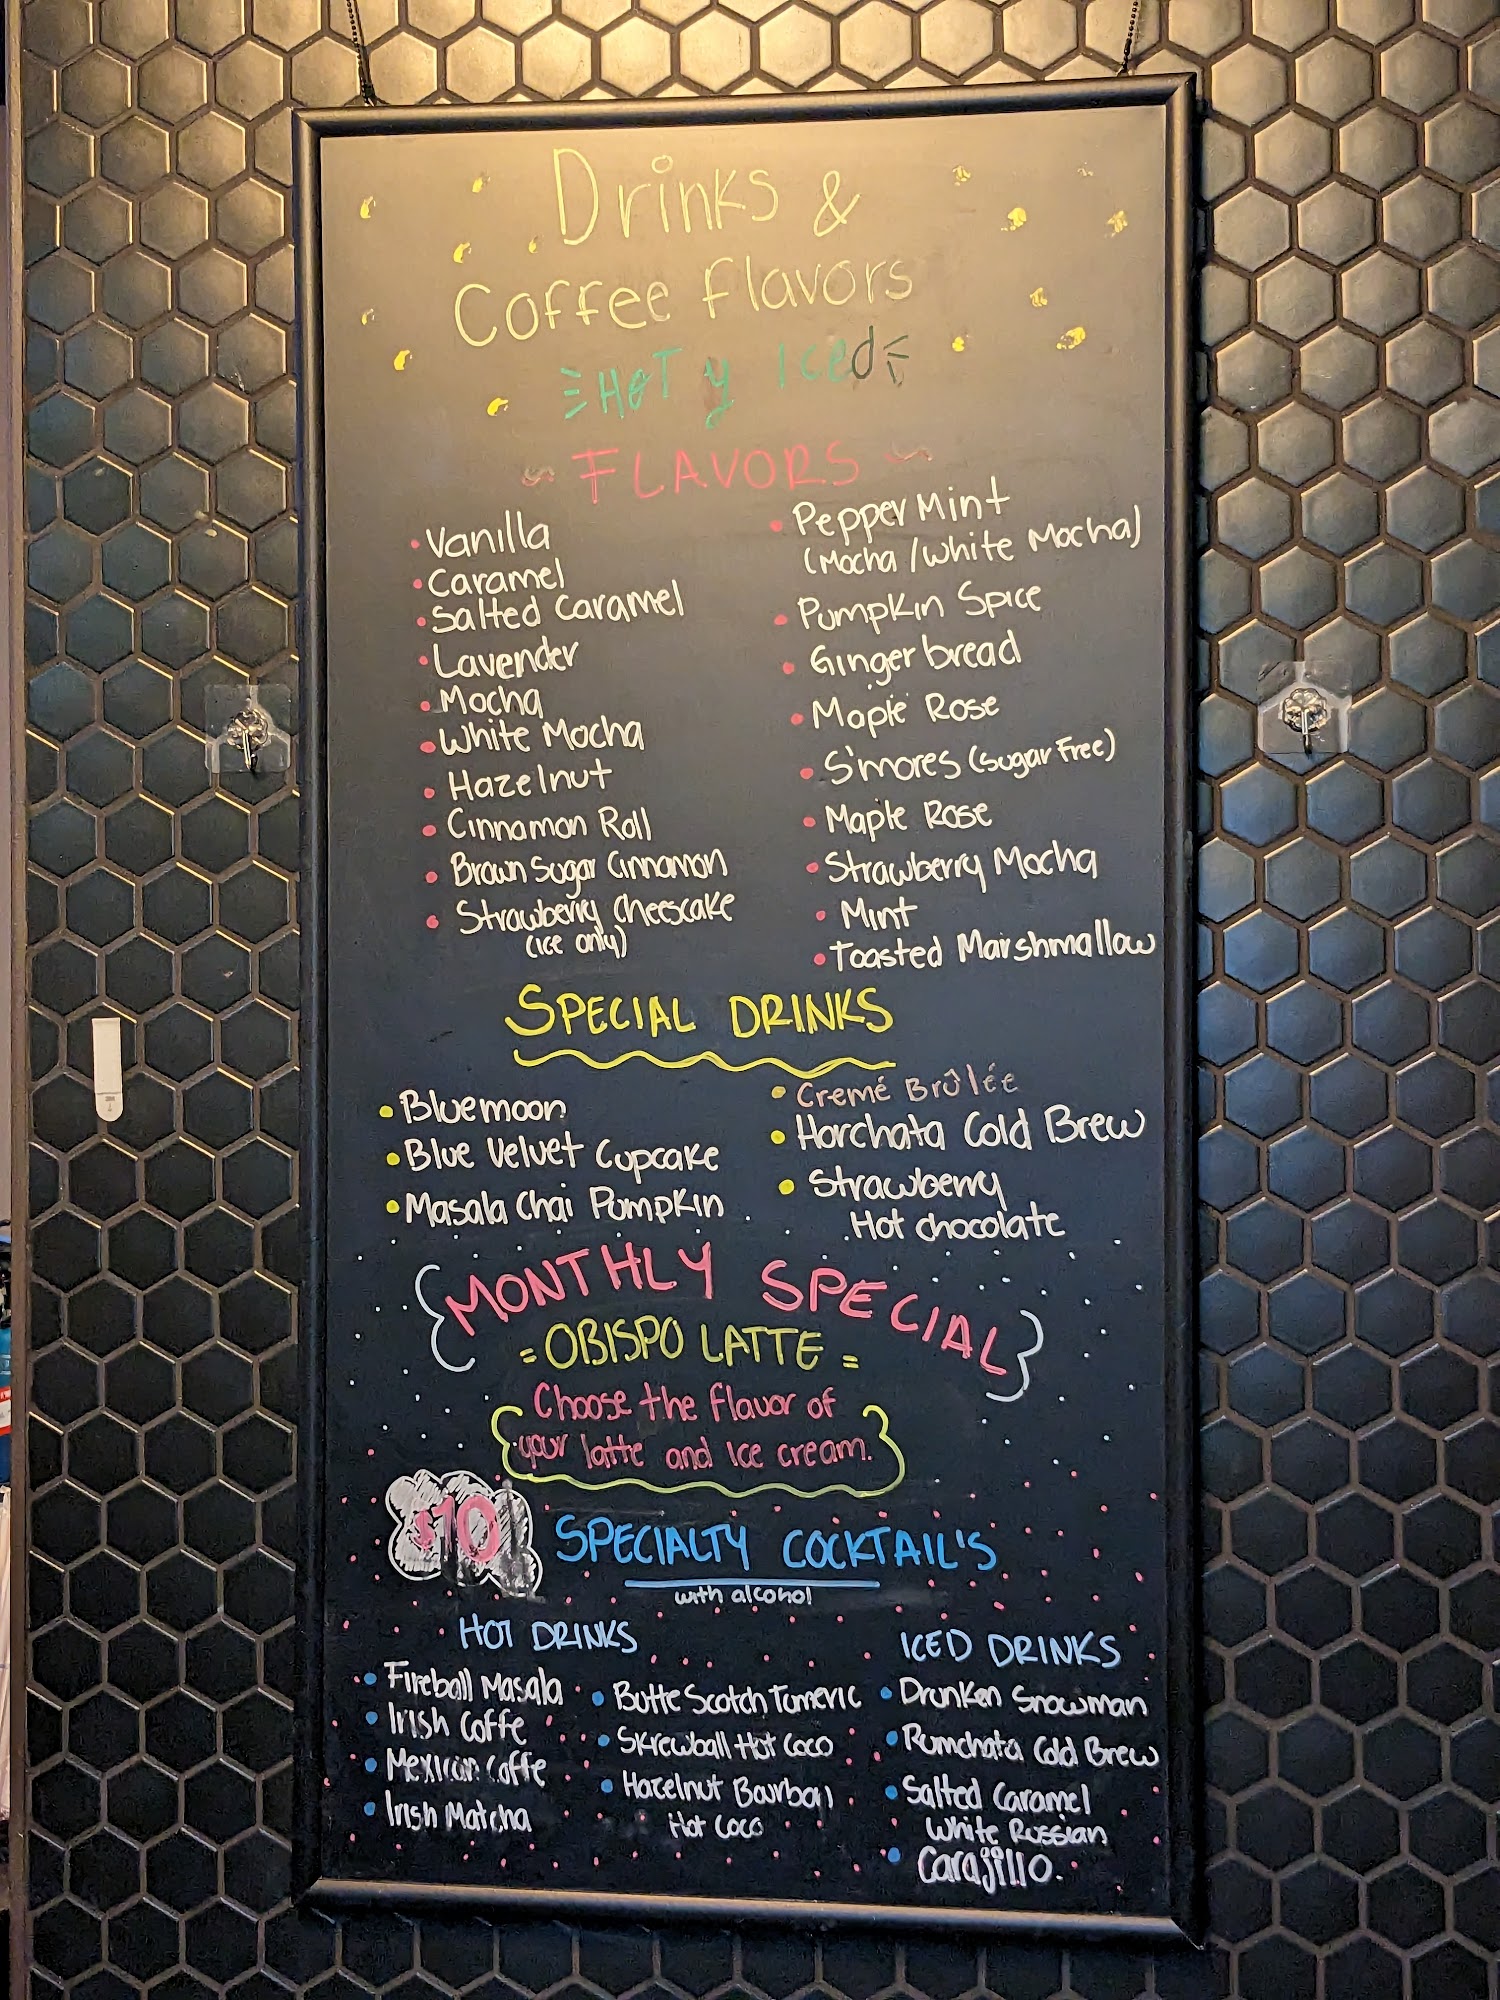 Drinks &
Coffee flavors
HOT y Iced
FLAVORS
Vanilla
Caramel
Salted Caramel
Lavender
Mocha
White Mocha
Hazelnut
Cinnamon Roll
Brown Sugar Cinnamon
Strawberry Cheescake
(ice only)
PepperMint
(Mocha / White Mocha)
Pumpkin Spice
Ginger bread
Maple Rose
S'mores (Sugar Free)
Maple Rose
Strawberry Mocha
Mint
Toasted Marshmallow
SPECIAL DRINKS
Bluemoon
Blue Velvet Cupcake
Masala Chai Pumpkin
Cremé Brûlée
Horchata Cold Brew
Strawberry
Hot chocolate
MONTHLY SPECIAL
= OBISPO LATTE =
Choose the flavor of
your latte and Ice cream.
$10
SPECIALTY COCKTAIL'S
with alcohol
HOT DRINKS
Fireball Masala
Irish Coffe
Mexican Coffe
Irish Matcha
ButteScotch Tumeric
Skrewball Hot Coco
Hazelnut Bourbon
Hot Coco
ICED DRINKS
Drunken Snowman
Rumchata Cold Brew
Salted Caramel
White Russian
Carajillo.